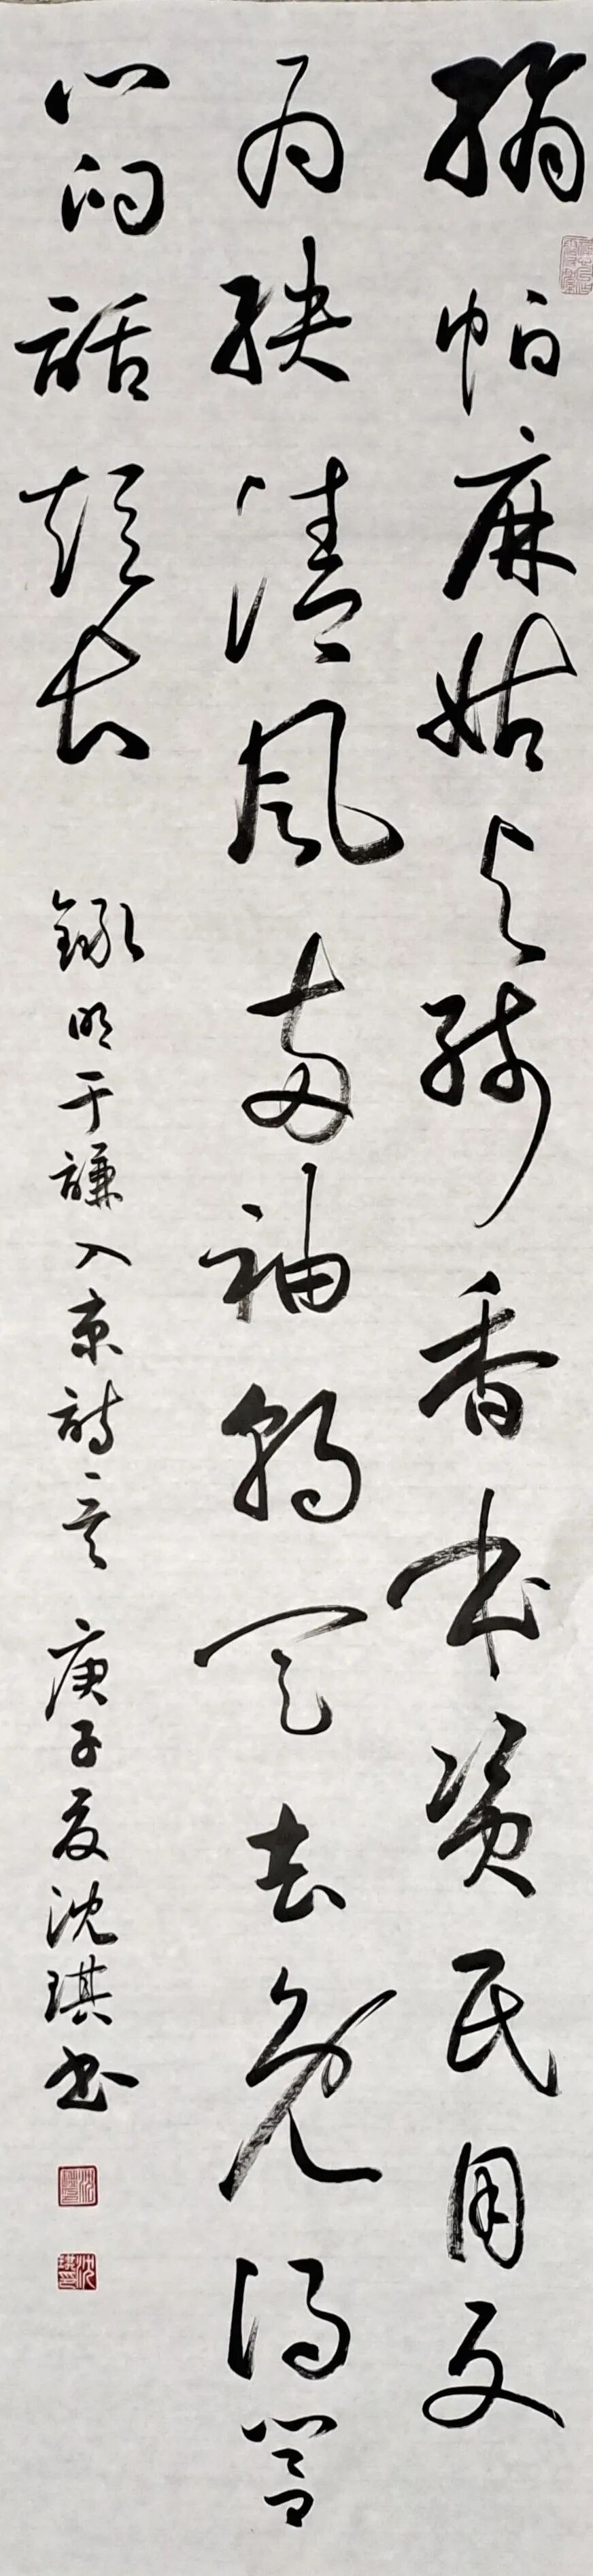 絹帕麻姑与綫香本資民用反
為殃清風兩袖朝天去免得閭
閻話短長
錄明于謙入京詩一首 庚子夏沈琪书